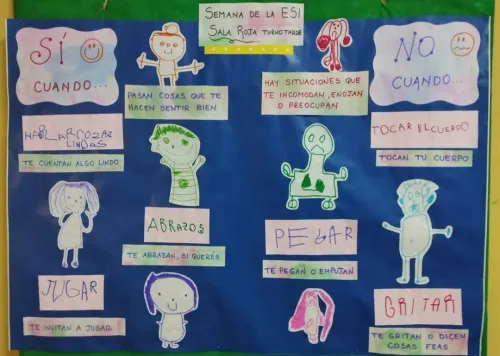 SEMANA DE LA ESI
SALA ROJA TURNO TARDE
SÍ
CUANDO...
PASAN COSAS QUE TE
HACEN SENTIR BIEN
HABLAR COZAZ
LINDAS
TE CUENTAN ALGO LINDO
ABRAZOS
TE ABRAZAN, SI QUERÉS
JUGAR
TE INVITAN A JUGAR
NO
CUANDO...
HAY SITUACIONES QUE
TE INCOMODAN, ENOJAN
O PREOCUPAN
TOCAR EL CUERPO
TOCAN TU CUERPO
PEGAR
TE PEGAN O EMPUJAN
GRITAR
TE GRITAN O DICEN
COSAS FEAS